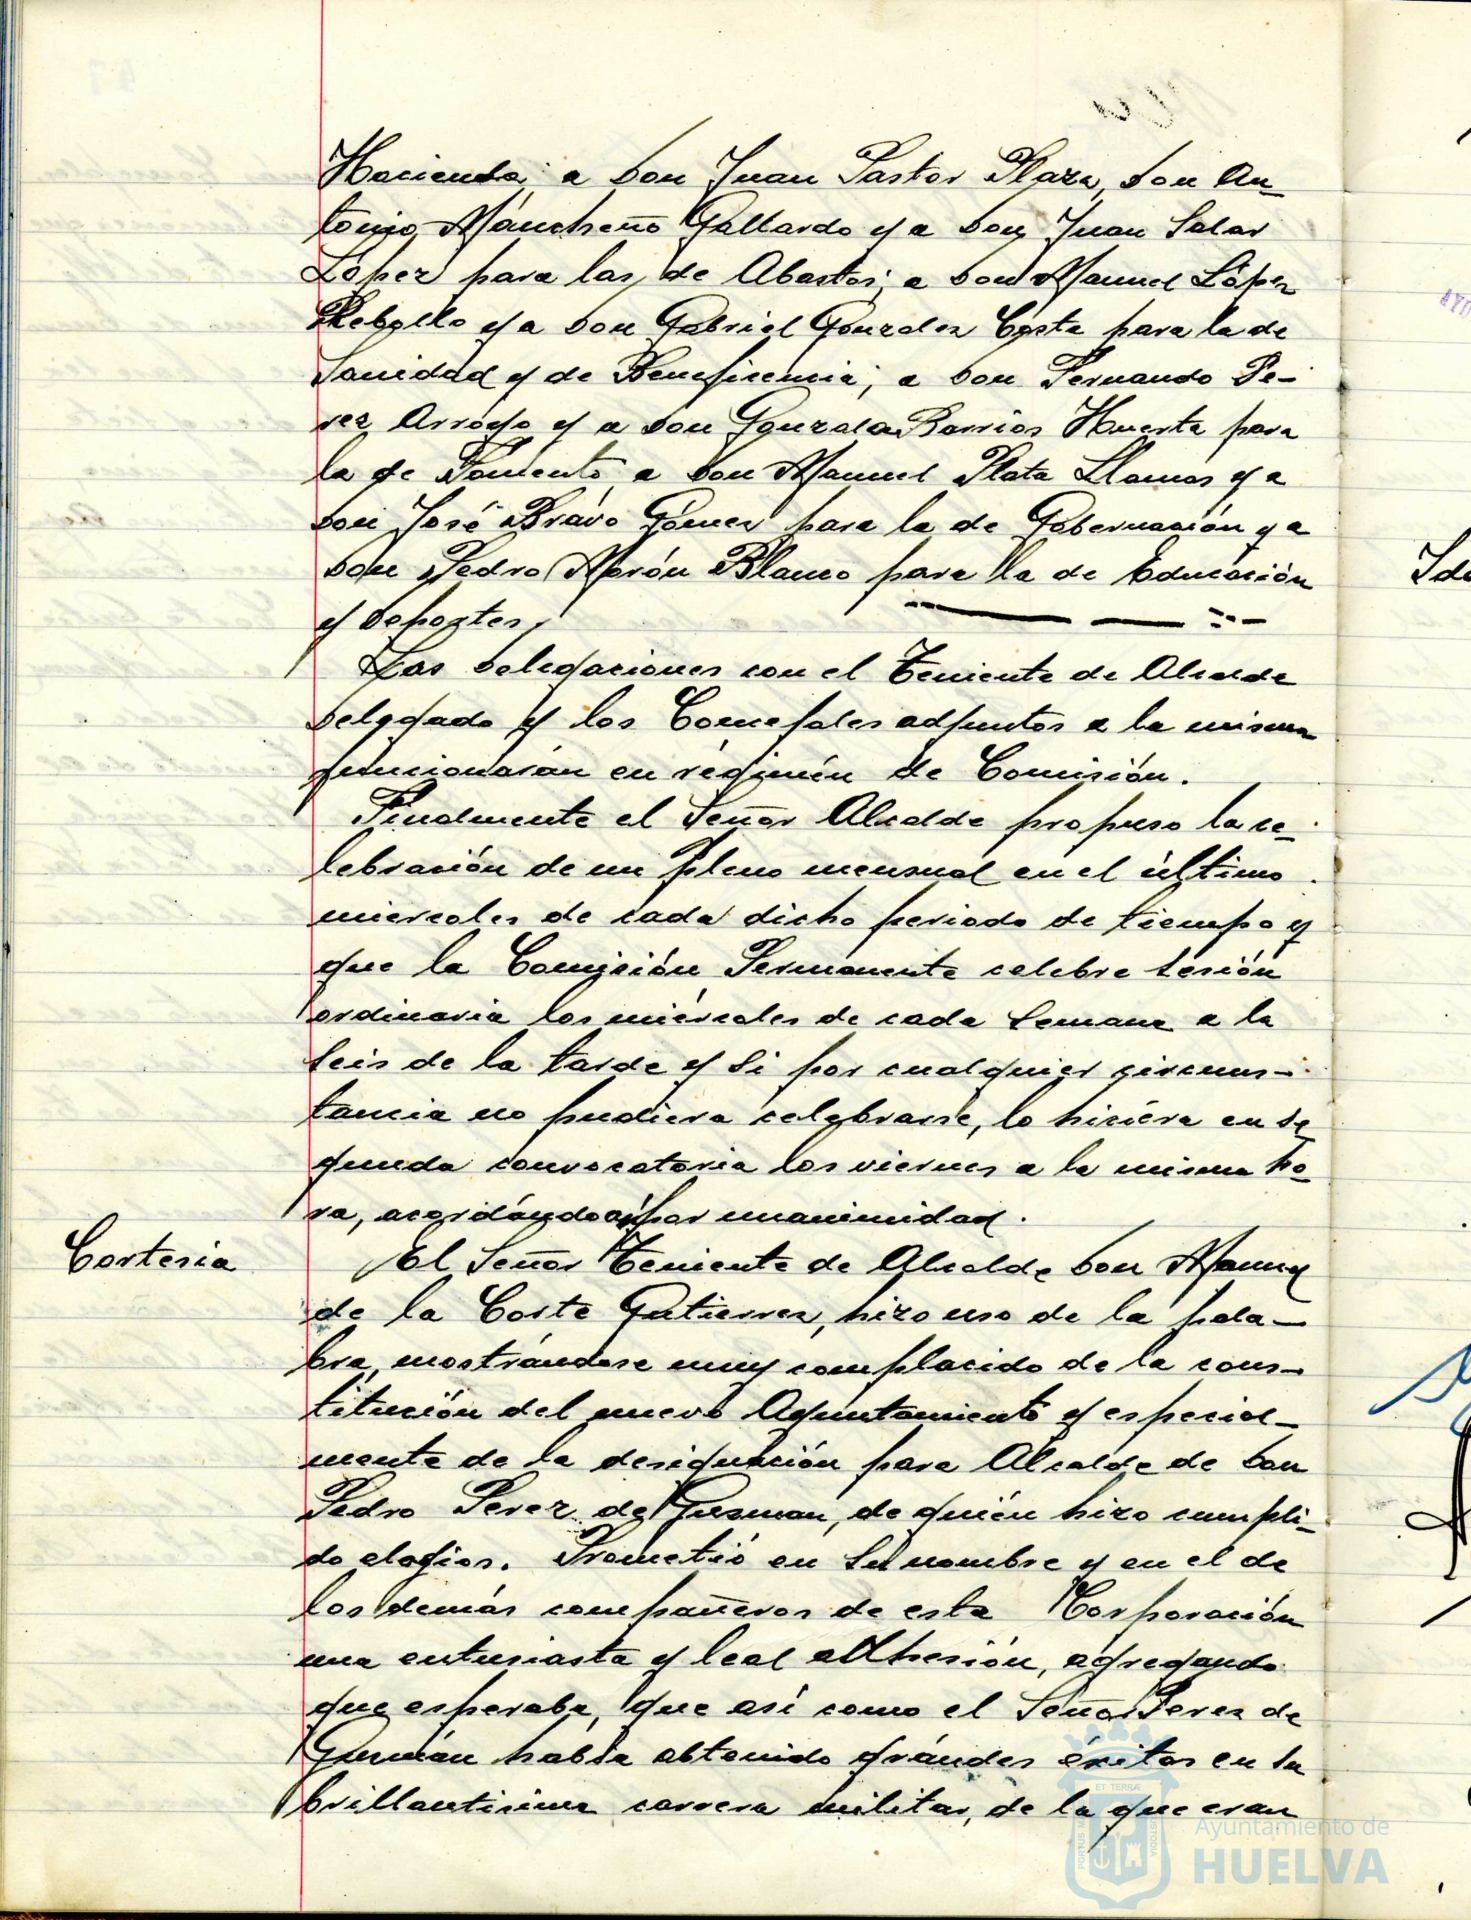 Hacienda; a Don Juan Pastor Plaza, Don An-
tonio Mancheño Gallardo y a Don Juan Salar
López para las de Abastos; a Don Manuel López
Rebollo y a Don Gabriel Gonzalez Costa para la de
Sanidad y de Beneficencia; a Don Fernando Pe-
rez Arroyo y a Don Gonzalo Barrios Huerta para
la de Fomento, a Don Manuel Plata Llamas y a
Don José Bravo Gómez para la de Gobernación y a
Don Pedro Morón Blanco para la de Educación
y Deportes,
Las Delegaciones con el Teniente de Alcalde
Delegado y los Concejales adjuntos a la misma
funcionarán en régimen de Comisión.
Finalmente el Señor Alcalde propuso la ce-
lebración de un pleno mensual en el último
miercoles de cada dicho periodo de tiempo y
que la Comisión Permanente celebre sesión
ordinaria los miércoles de cada semana a la
seis de la tarde y si por cualquier circuns-
tancia no pudiera celebrarse, lo hiciera en se-
gunda convocatoria los viernes a la misma ho-
ra, acordándose así por unanimidad.
Cortesia
El Señor Teniente de Alcalde Don Manuel
de la Corte Gutierrez, hizo uso de la pala-
bra, mostrándose muy complacido de la cons-
titución del nuevo Ayuntamiento y especial-
mente de la designación para Alcalde de Don
Pedro Perez de Guzman, de quién hizo cumpli-
do elogios. Prometió en su nombre y en el de
los demás compañeros de esta Corporación
una entusiasta y leal adhesión, agregando
que esperaba, que así como el Señor Perez de
Guzmán había obtenido grándes éxitos en su
brillantisima carrera militar, de la que eran
Ayuntamiento de
HUELVA